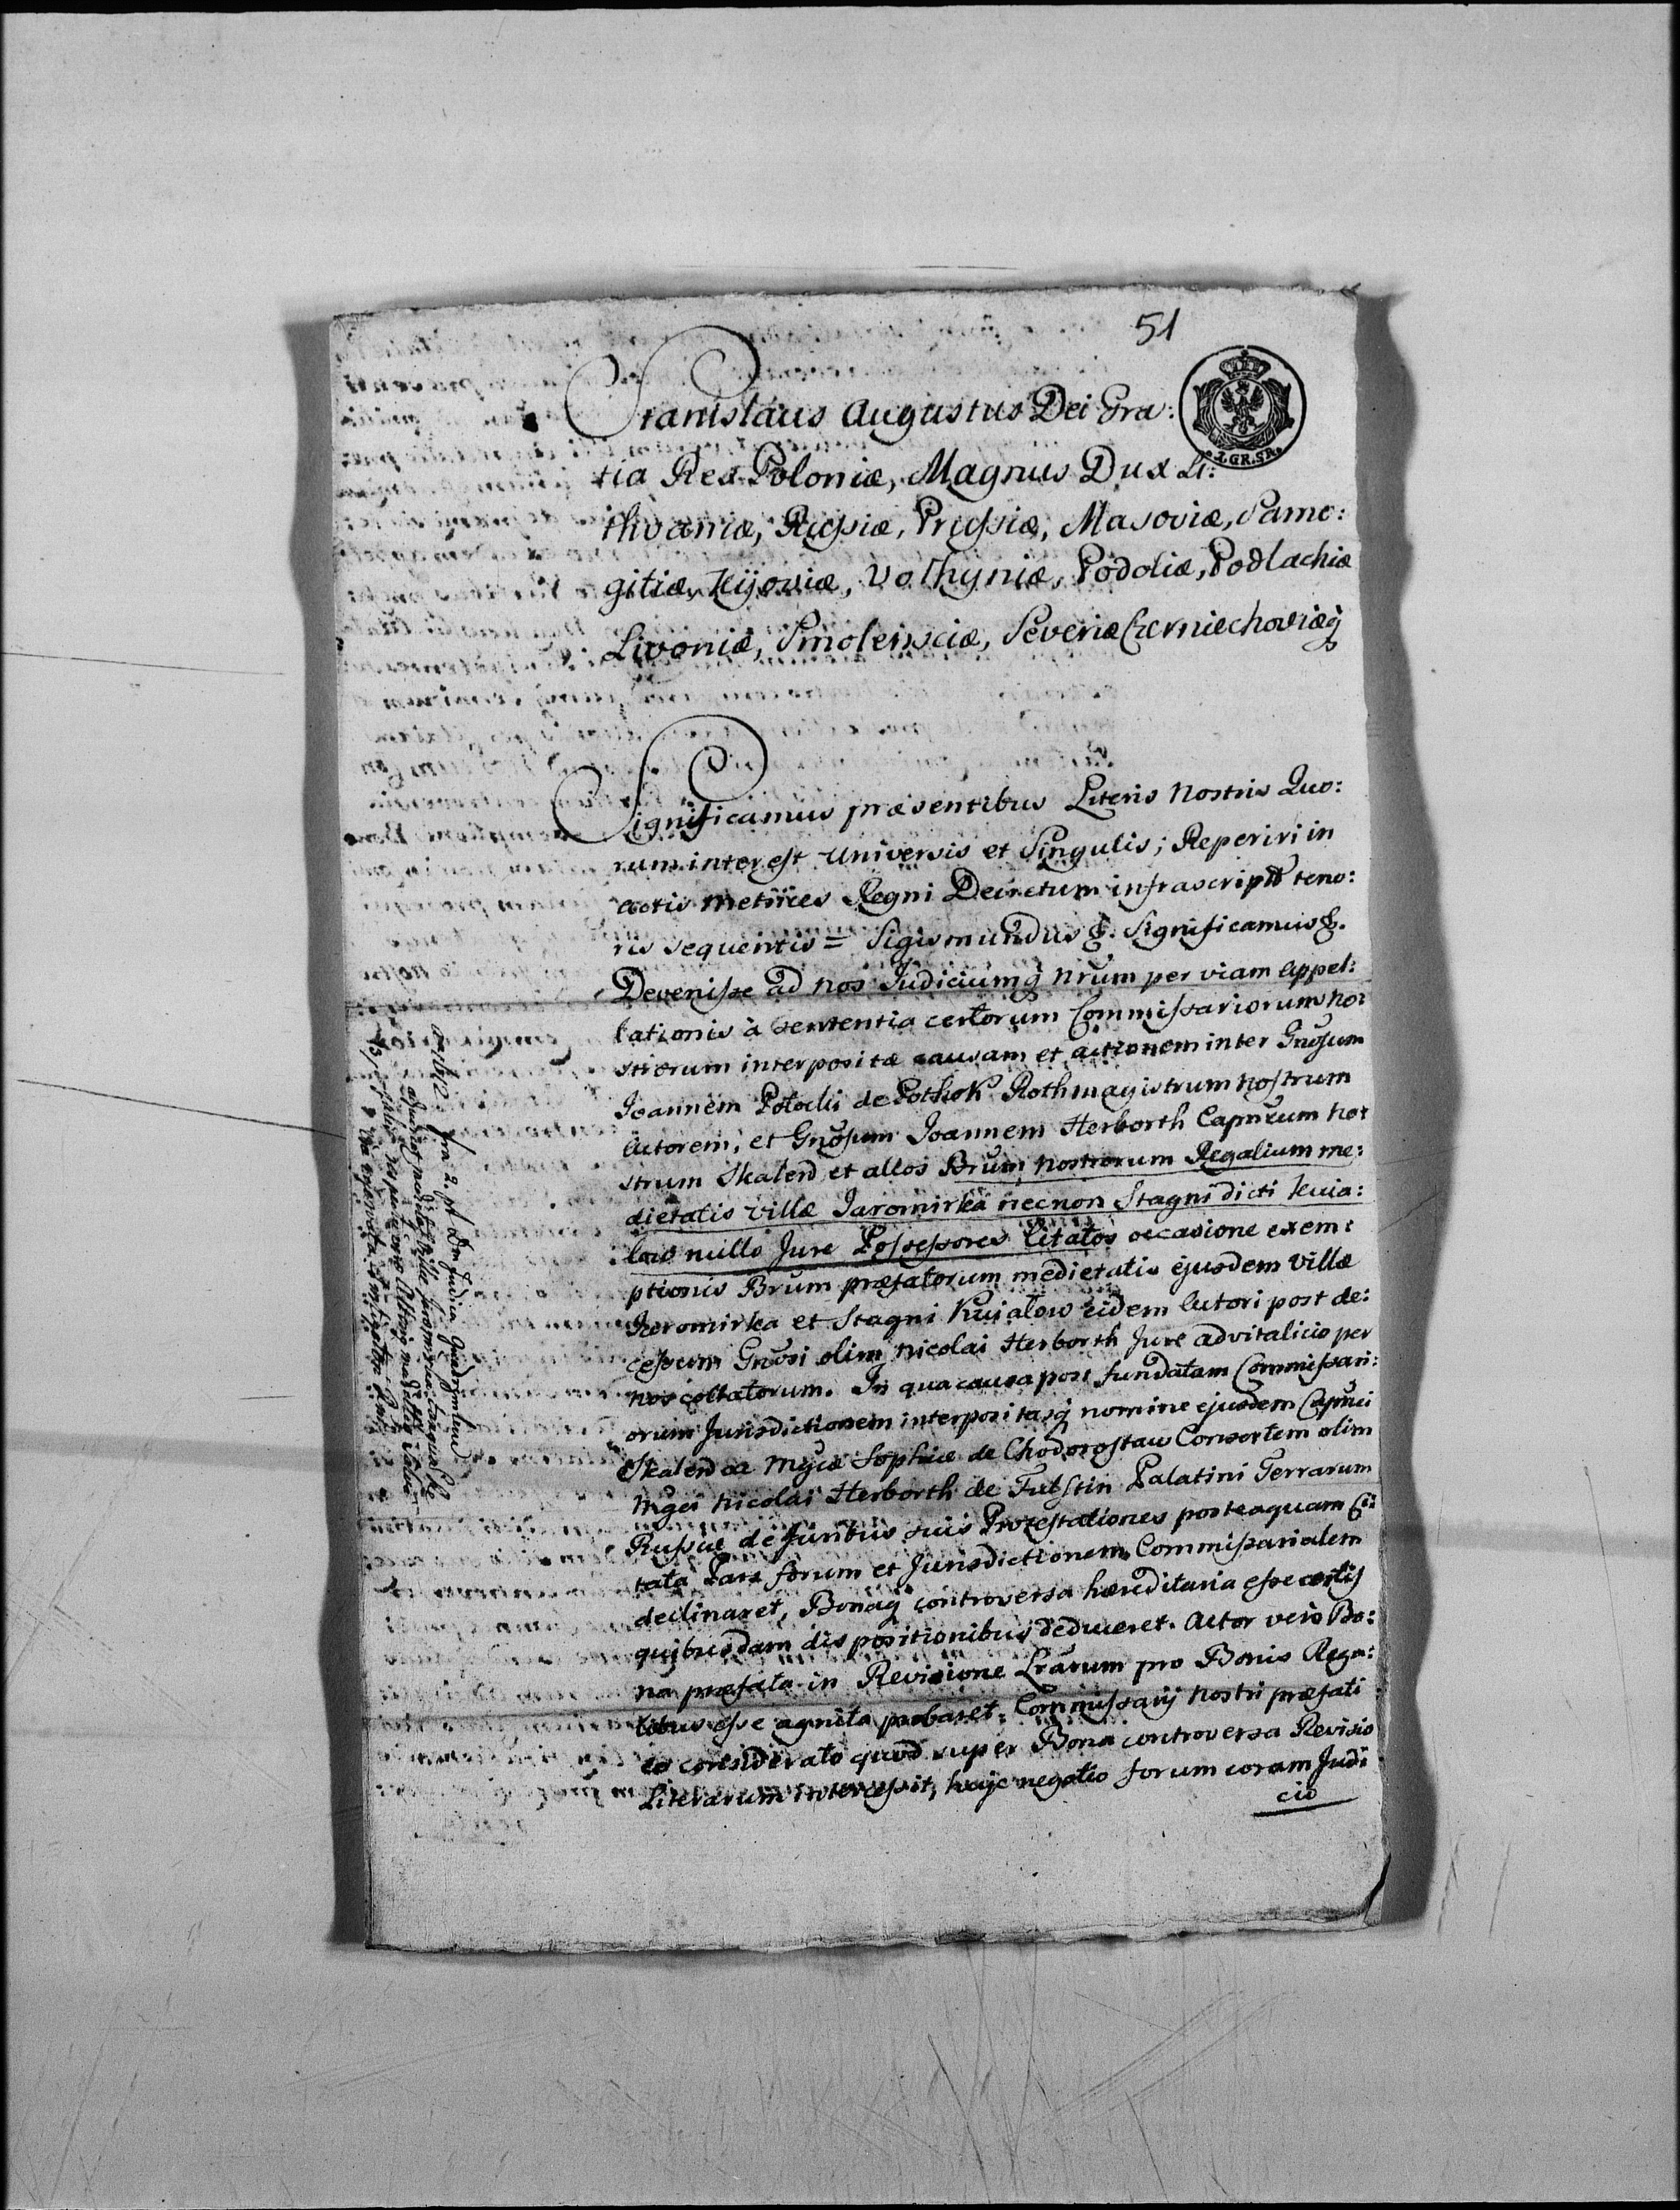 51
Stanislaus Augustus Dei Gra:
tia Rex Poloniæ, Magnus Dux Li:
thvaniæ, Russiæ, Prussiæ, Masoviæ, Samo:
gitiæ, Kijoviæ, Volhyniæ, Podoliæ, Podlachiæ
Livoniæ, Smolensciæ, Severiæ Czerniechoviæq
2.GR.SR.
Significamus præsentibus Literis Nostris Quo:
rum interest Universis et Singulis; Reperiri in
actis Metrices Regni Decretum infrascripti teno:
ris sequentis = Sigismundus &. Significamus &.
Devenisse ad Nos Judiciumq Nrum per viam Appel:
lationis à sententia certorum Commissariorum No:
strorum interpositæ causam et actionem inter Gnosum
Joannem Potocki de Pothok Rothmagistrum Nostrum
Actorem, et Gnosum Joannem Herborth Capneum No:
strum Skalen et allos Brum Nostrorum Regalium me:
dietatis villæ Jaromirka necnon Stagni dicti Kuia:
low nullo Jure Possessores Citatos occasione exem:
ptionis Brum præfatorum medietatis ejusdem villæ
Jeromirka et Stagni Kuialow eidem Actori post de:
cessum Gnosi olim Nicolai Herborth Jure advitalicio per
nos collatorum. In qua causa post fundatam Commissari:
orum Jurisdictionem interpositasq nomine ejusdem Capnei
Skalen ac Mgcæ Sophiæ de Chodorostaw Consortem olim
Mgci Nicolai Herborth de Fulstin Palatini Terrarum
Russiæ de Juribus suis Protestationes posteaquam Ci:
tata Pars forum et Jurisdictionem Commissarialem
declinaret, Bonaq controversa hæreditaria esse certis
quibusdam dispositionibus deduceret. Actor vero Bo:
na præfata in Revisione Lrarum pro Bonis Rega:
libus esse agnita probaret. Commissarij Nostri præfati
eo considerato quod super Bona controversa Revisio
Literarum intercessit, hujc negotio forum coram Judi
cio